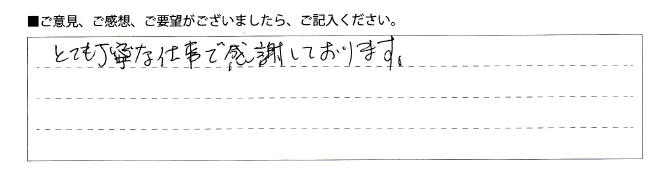 ■ご意見、ご感想、ご要望がございましたら、ご記入ください。
とても丁寧な仕事で感謝しております。